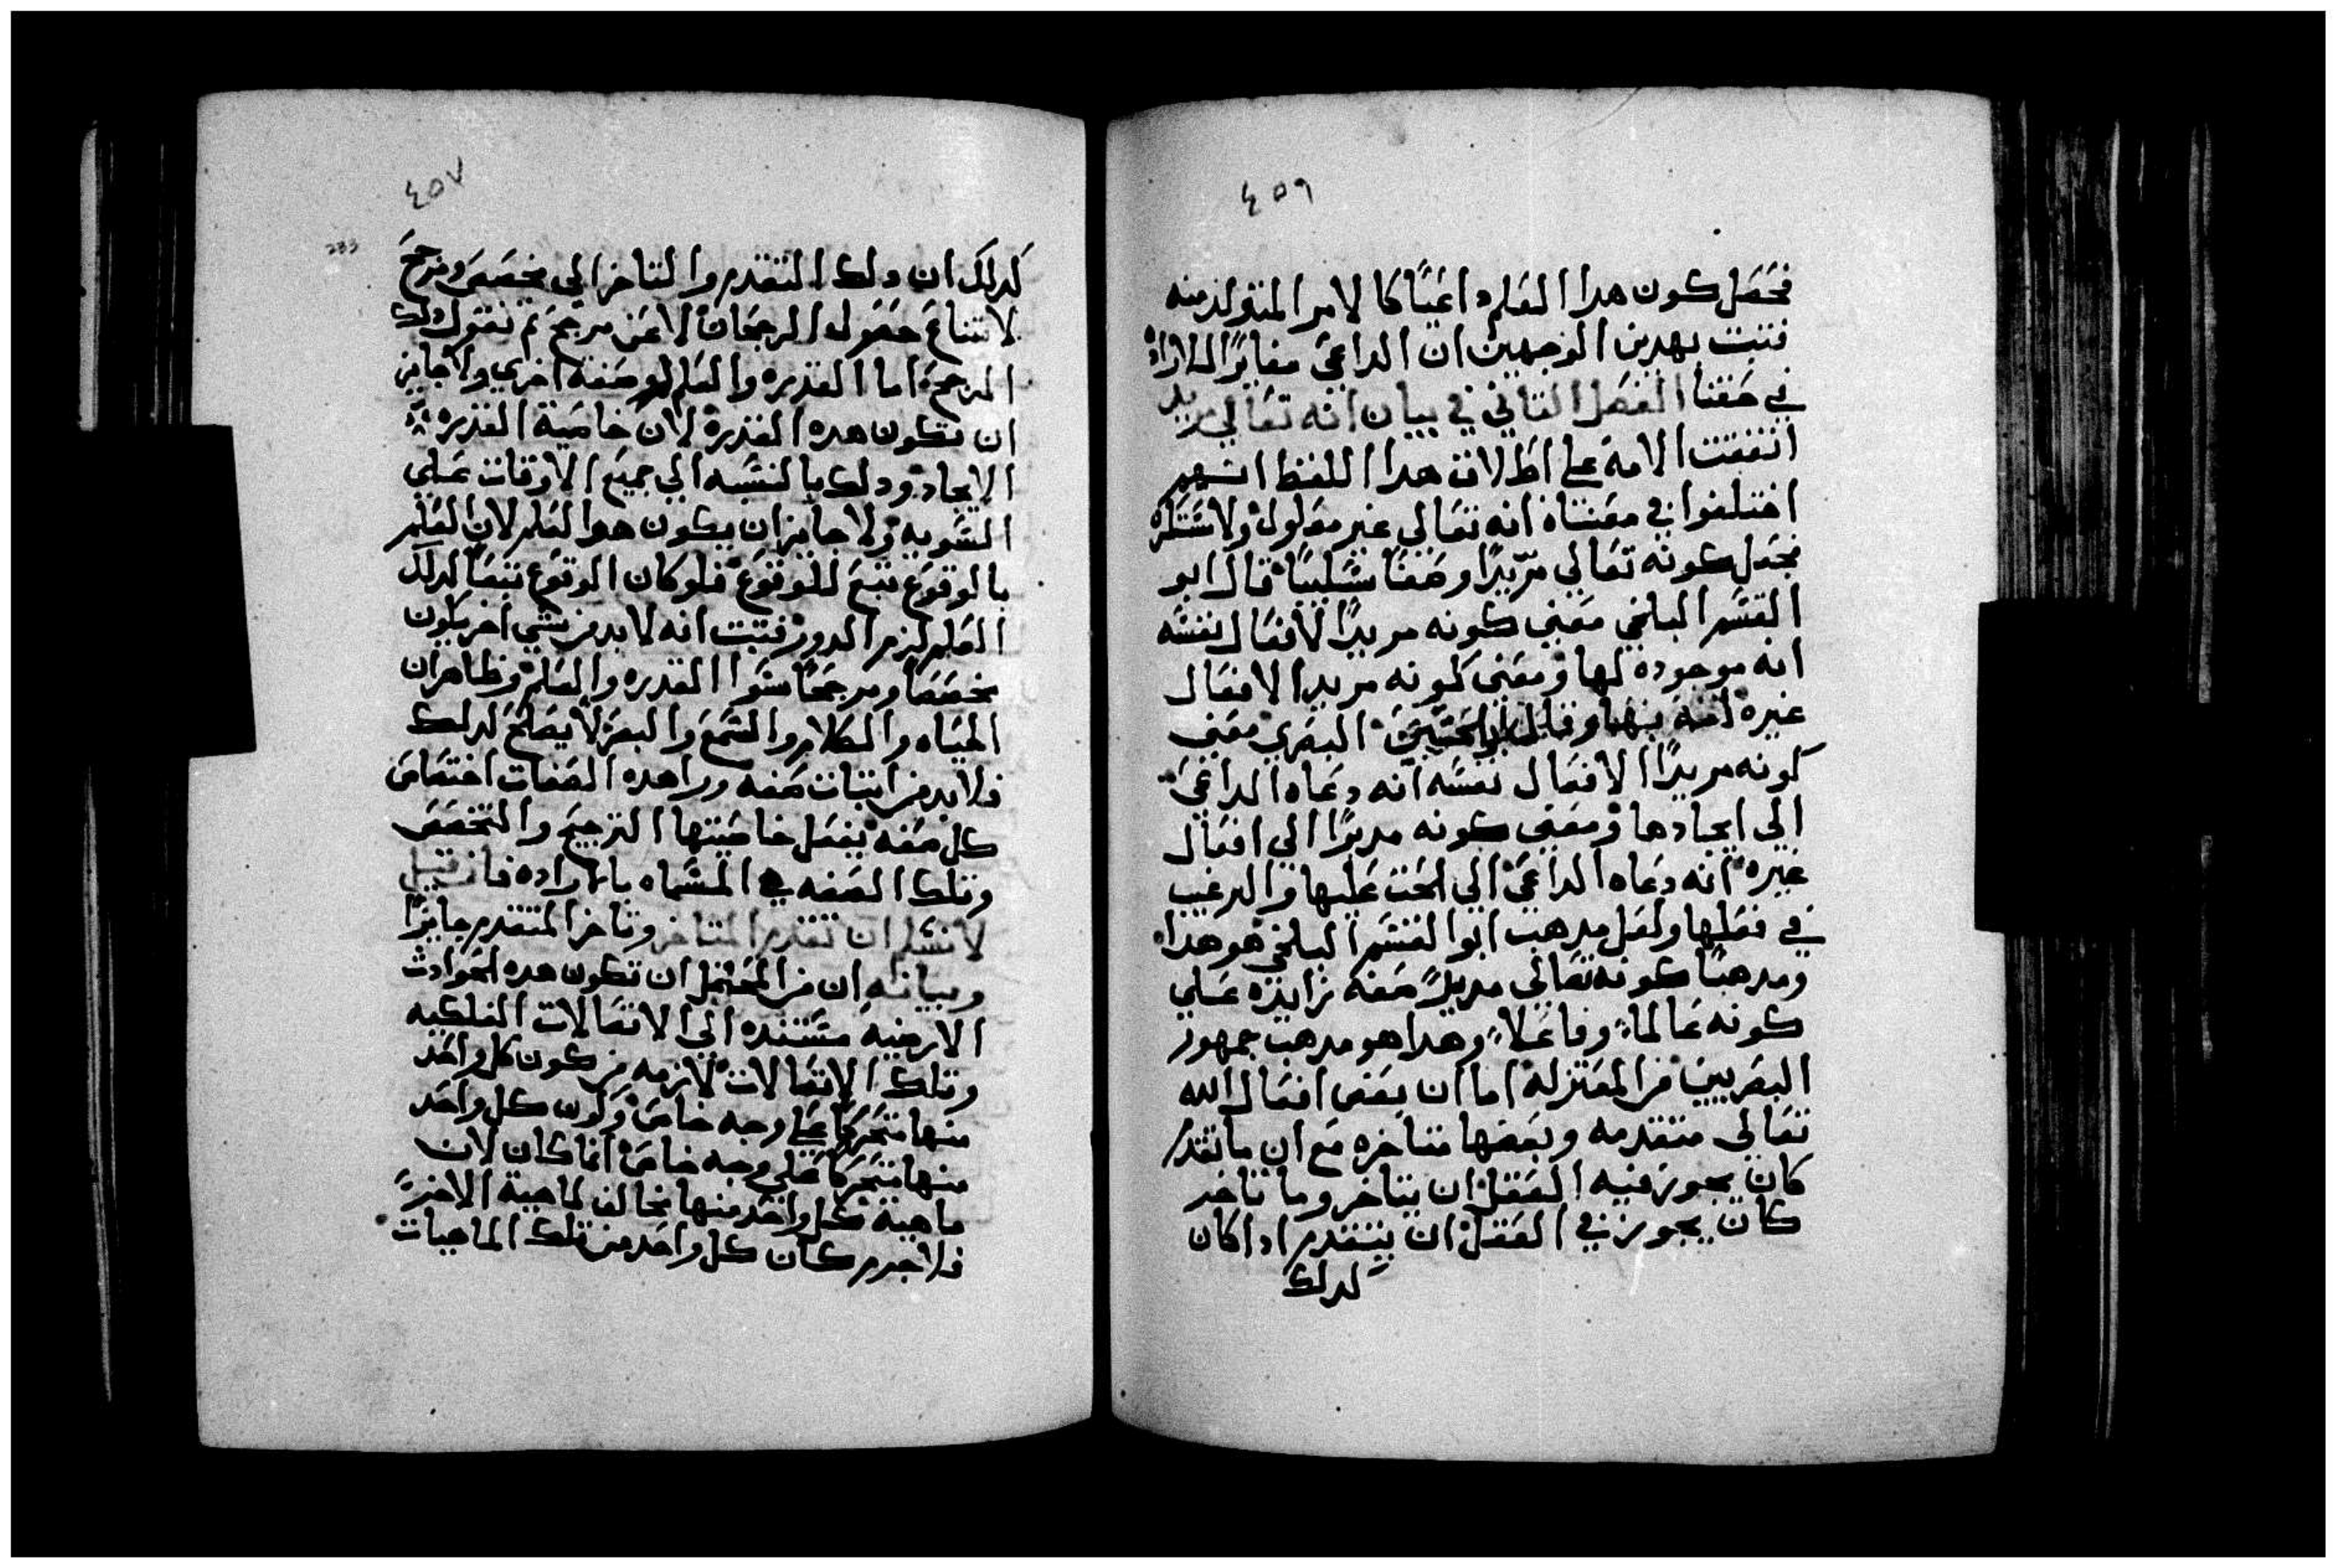 ٤٥٦
فحصل كون هدا العلم داعيًا كا لامر المتولد منه
فتبت بهدين الوجهين ان الداعي مغايرًا للاراده
في حقنا الفصل التاني في بيان انه تعالي مريد
اتفقت الامه علي اطلاق هدا اللفظ
اختلفوا في معناه انه تعالي غير مغلول ولا مستكره
فجعل كونه تعالي مريدًا وصفًا سلبيًا قال ابو
القسم البلخي معني كونه مريدًا لافعال نفسه
انه موجوده لها ومعني كونه مريدا لافعال
غيره انه بها وقال ابو الحسين البصري معني
كونه مريدًا لافعال نفسه انه دعاه الداعي
الي ايجادها ومعني كونه مريدًا الي افعال
غيره انه دعاه الداعي الي الحت عليها والترغيب
في فعلها ولعل مدهب ابو القسم البلخي هو هدا
ومدهبنا كونه تعالي مريدًا صفه زايده علي
كونه عالماً وفاعلاً وهدا هو مدهب جمهور
البصريين من المعتزله اما ان بعض افعال الله
تعالي متقدمه وبعضها متاخره مع ان ما تقدم
كان يجوز فيه العقل ان يتاخر وما تاخر
كان يجوز في العقل ان يتقدم ادا كان
لدلك
٤٥٧
233
كدلك ان دلك التقدم والتاخر الي مخصص ومرجح
لامتناع حصول الرجحان لا عن مرجح تم نقول دلك
المرجح اما القدره والعلم او صفه اخري ولا جايز
ان تكون هده القدره لان خاصية القدره
الايجاد ودلك بالنسبه الي جميع الاوقات علي
السويه ولا جايز ان يكون هو العلم لان العلم
بالوقوع تبع للوقوع فلو كان الوقوع تبعًا لدلك
العلم لزم الدور فتبت انه لا بد من شي اخر يكون
مخصصًا ومرجحًا سوا القدره والعلم وظاهر ان
الحياه والكلام والسمع والبصر لا يصلح لدلك
فلا بد من اتبات صفه ورا هده الصفات اختصاص
كل صفه يفعل خاصيتها الترجيح والتخصص
وتلك الصفه هي المسماه بالاراده فان قيل
لا نسلم ان تقدم المتاخر وتاخر المتقدم جايزًا
وبيانه ان من المحتمل ان تكون هده الحوادث
الارضيه مستنده الي الاتصالات الفلكيه
وتلك الاتصالات لازمه من كون كل واحد
منها متحركًا علي وجه خاص وكون كل واحد
منها متحركًا علي وجه خاص انما كان لان
ماهية كل واحد منها مخالف لماهية الاخر
فلا جرم كان كل واحد من تلك الماهيات